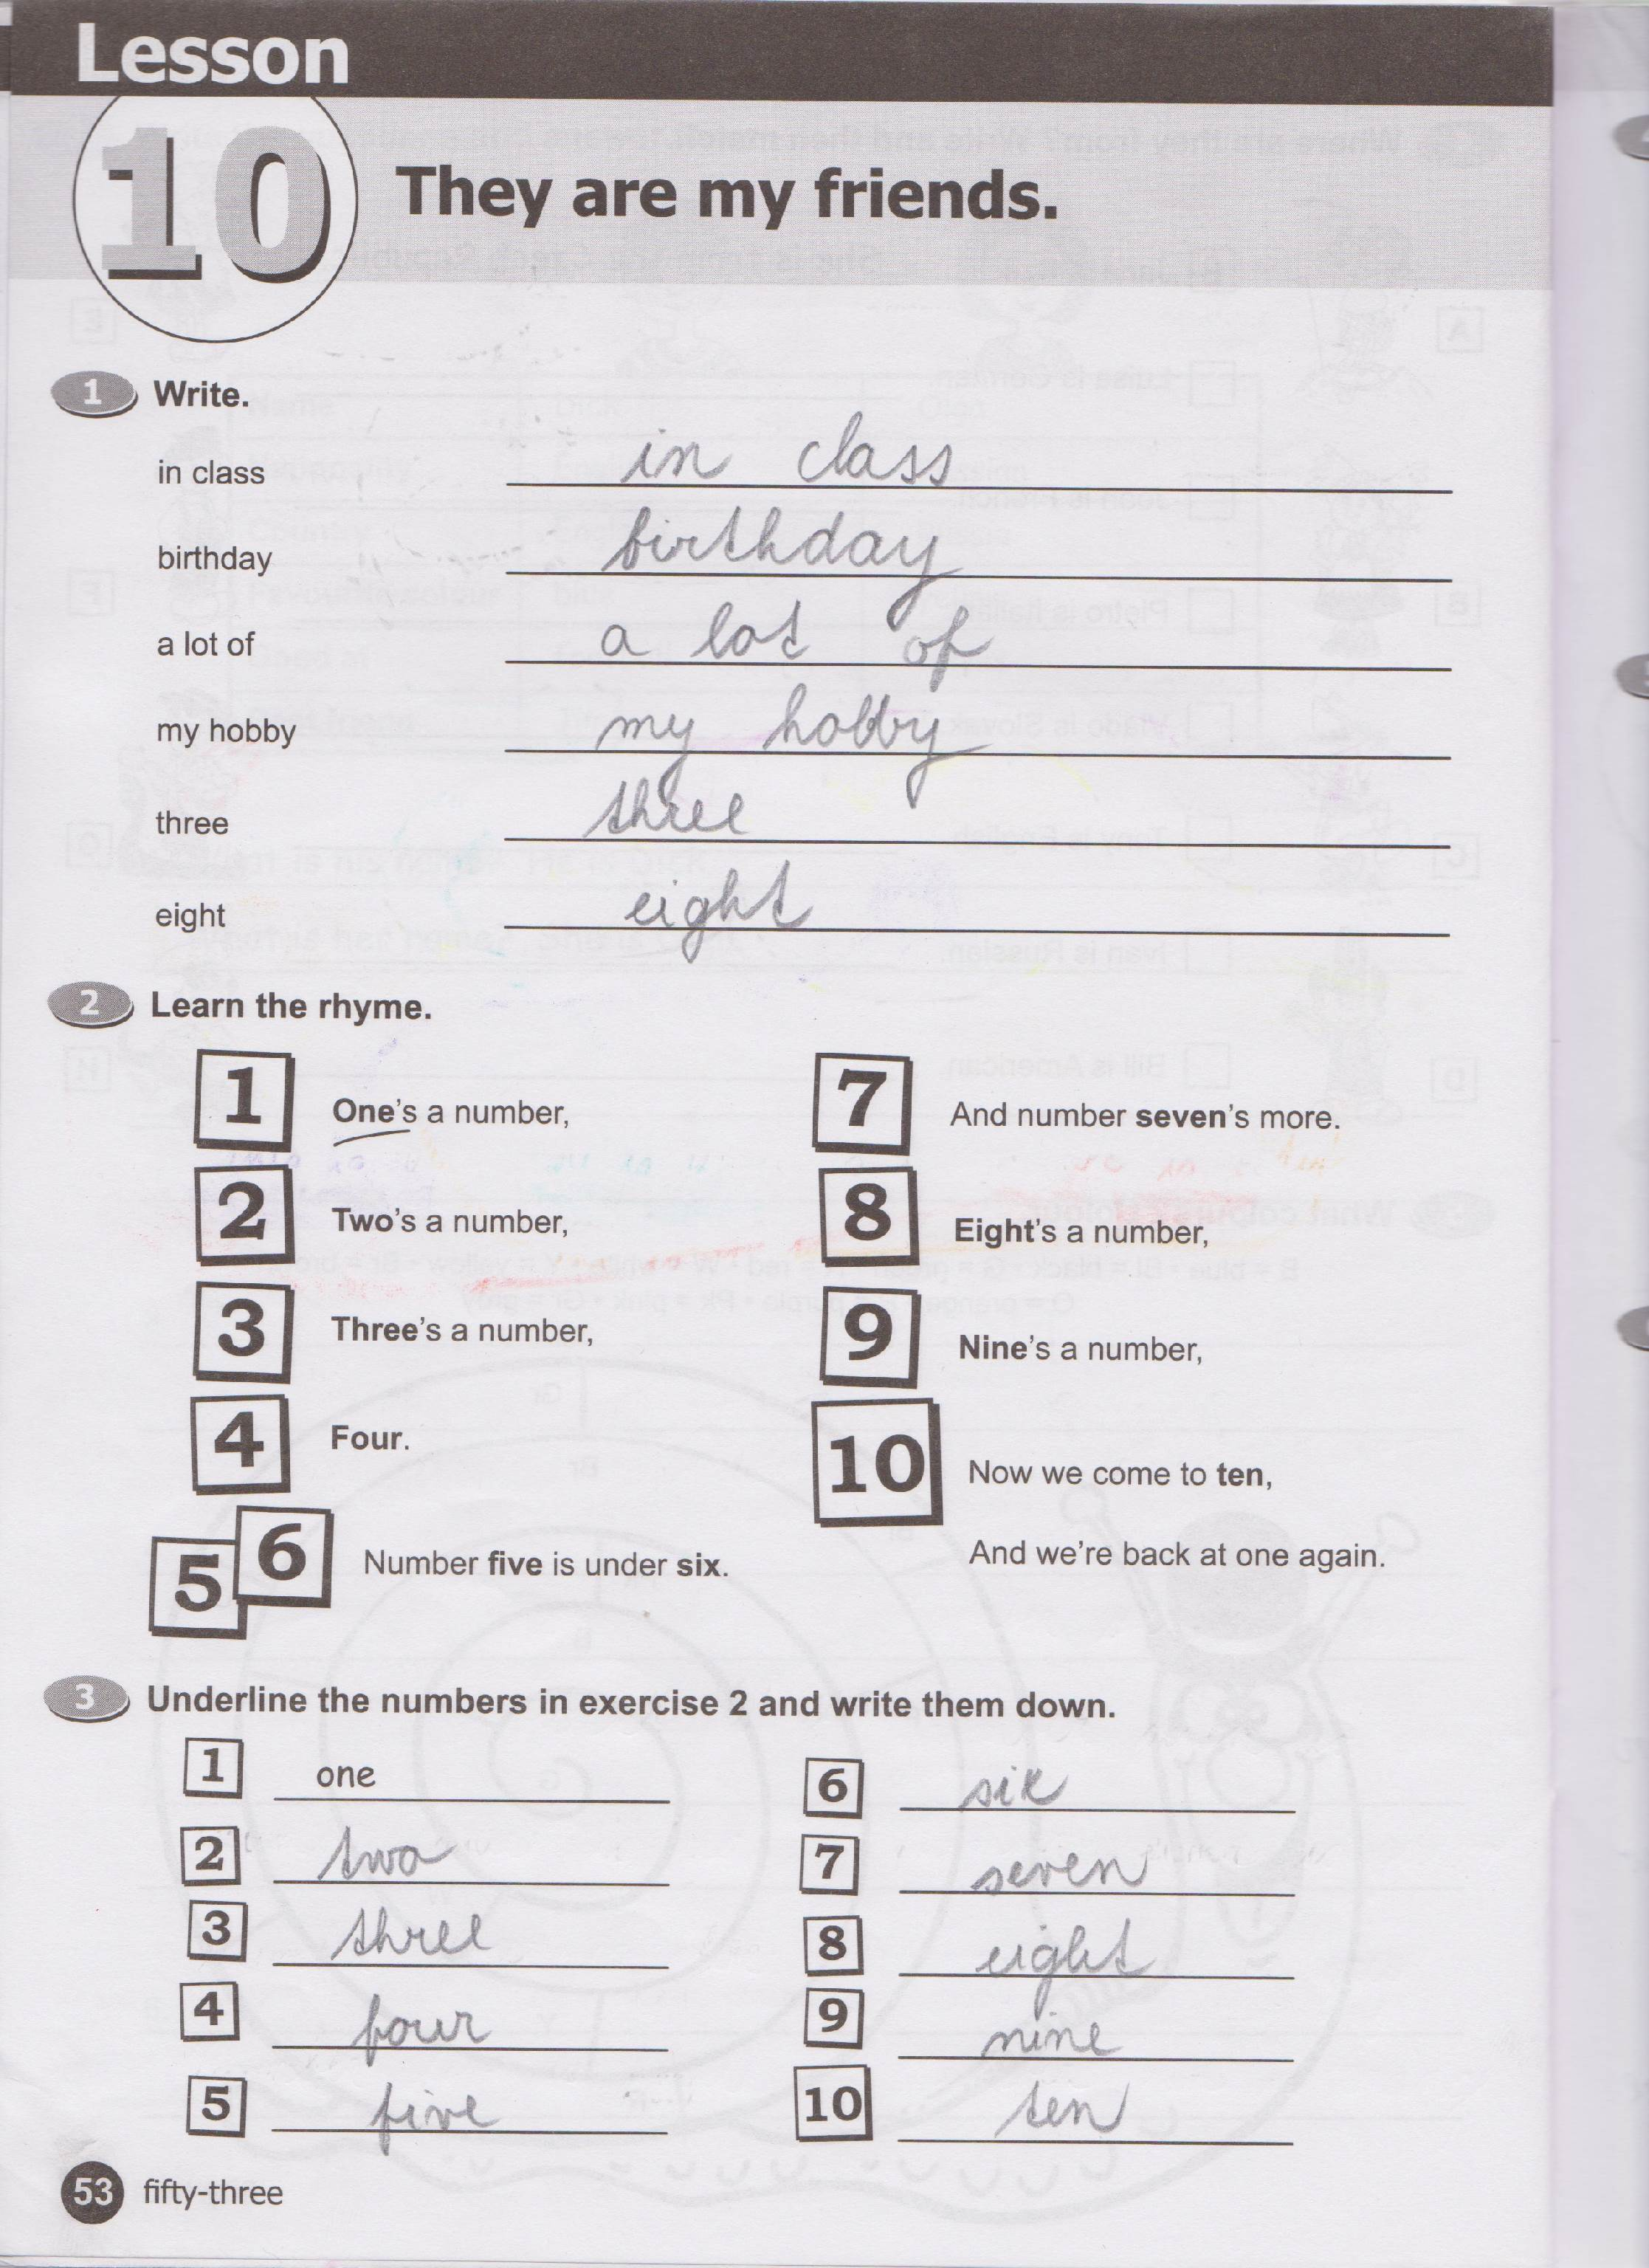 Lesson
10
They are my friends.
1 Write.
in class in class
birthday birthday
a lot of a lot of
my hobby my hobby
three three
eight eight
2 Learn the rhyme.
1 One's a number,
2 Two's a number,
3 Three's a number,
4 Four.
5 6 Number five is under six.
7 And number seven's more.
8 Eight's a number,
9 Nine's a number,
10 Now we come to ten,
And we're back at one again.
3 Underline the numbers in exercise 2 and write them down.
1 one
2 two
3 three
4 four
5 five
6 six
7 seven
8 eight
9 nine
10 ten
53 fifty-three